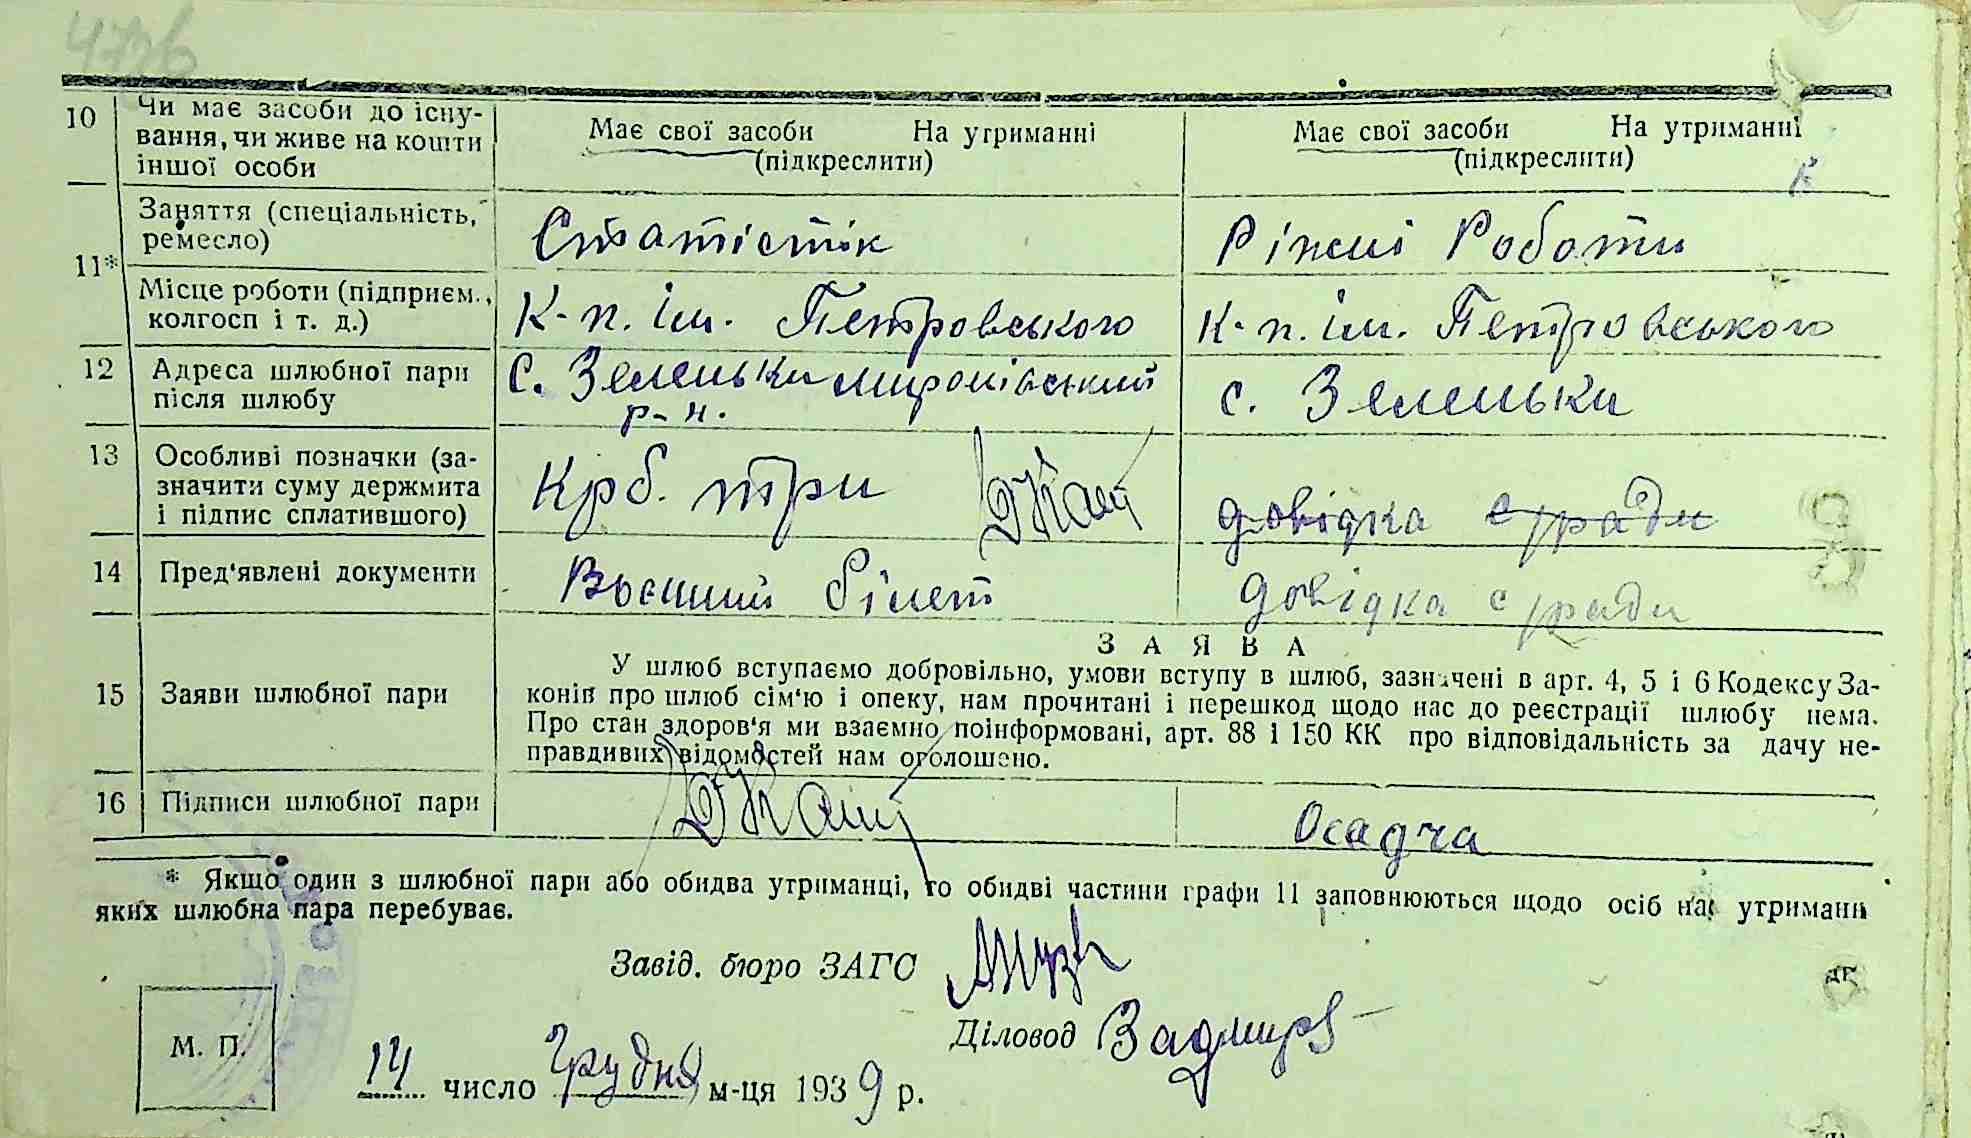 4796
10 Чи має засоби до існу-
вання, чи живе на кошти
іншої особи
Має свої засоби На утриманні
(підкреслити)
Має свої засоби На утриманні
(підкреслити)
11*
Заняття (спеціальність,
ремесло)
Статістік
Ріжні Роботи
Місце роботи (підприєм.,
колгосп і т. д.)
К-п. ім. Петровського
К-п. ім. Петровського
12 Адреса шлюбної пари
після шлюбу
С. Зеленьки миронівський
р-н.
с. Зеленьки
13 Особливі позначки (за-
значити суму держмита
і підпис сплатившого)
Крб. три
довідка с ради
14 Пред'явлені документи
Воєнний білет
довідка с ради
ЗАЯВА
15 Заяви шлюбної пари
У шлюб вступаємо добровільно, умови вступу в шлюб, зазначені в арт. 4, 5 і 6 Кодексу За-
конів про шлюб сім'ю і опеку, нам прочитані і перешкод щодо нас до реєстрації шлюбу нема.
Про стан здоров'я ми взаємно поінформовані, арт. 88 і 150 КК про відповідальність за дачу не-
правдивих відомостей нам оголошено.
16 Підписи шлюбної пари
Осадча
* Якщо один з шлюбної пари або обидва утриманці, то обидві частини графи 11 заповнюються щодо осіб на утриманн
яких шлюбна пара перебуває.
Завід. бюро ЗАГС
Діловод
М. П.
14 число Грудня м-ця 1939 р.